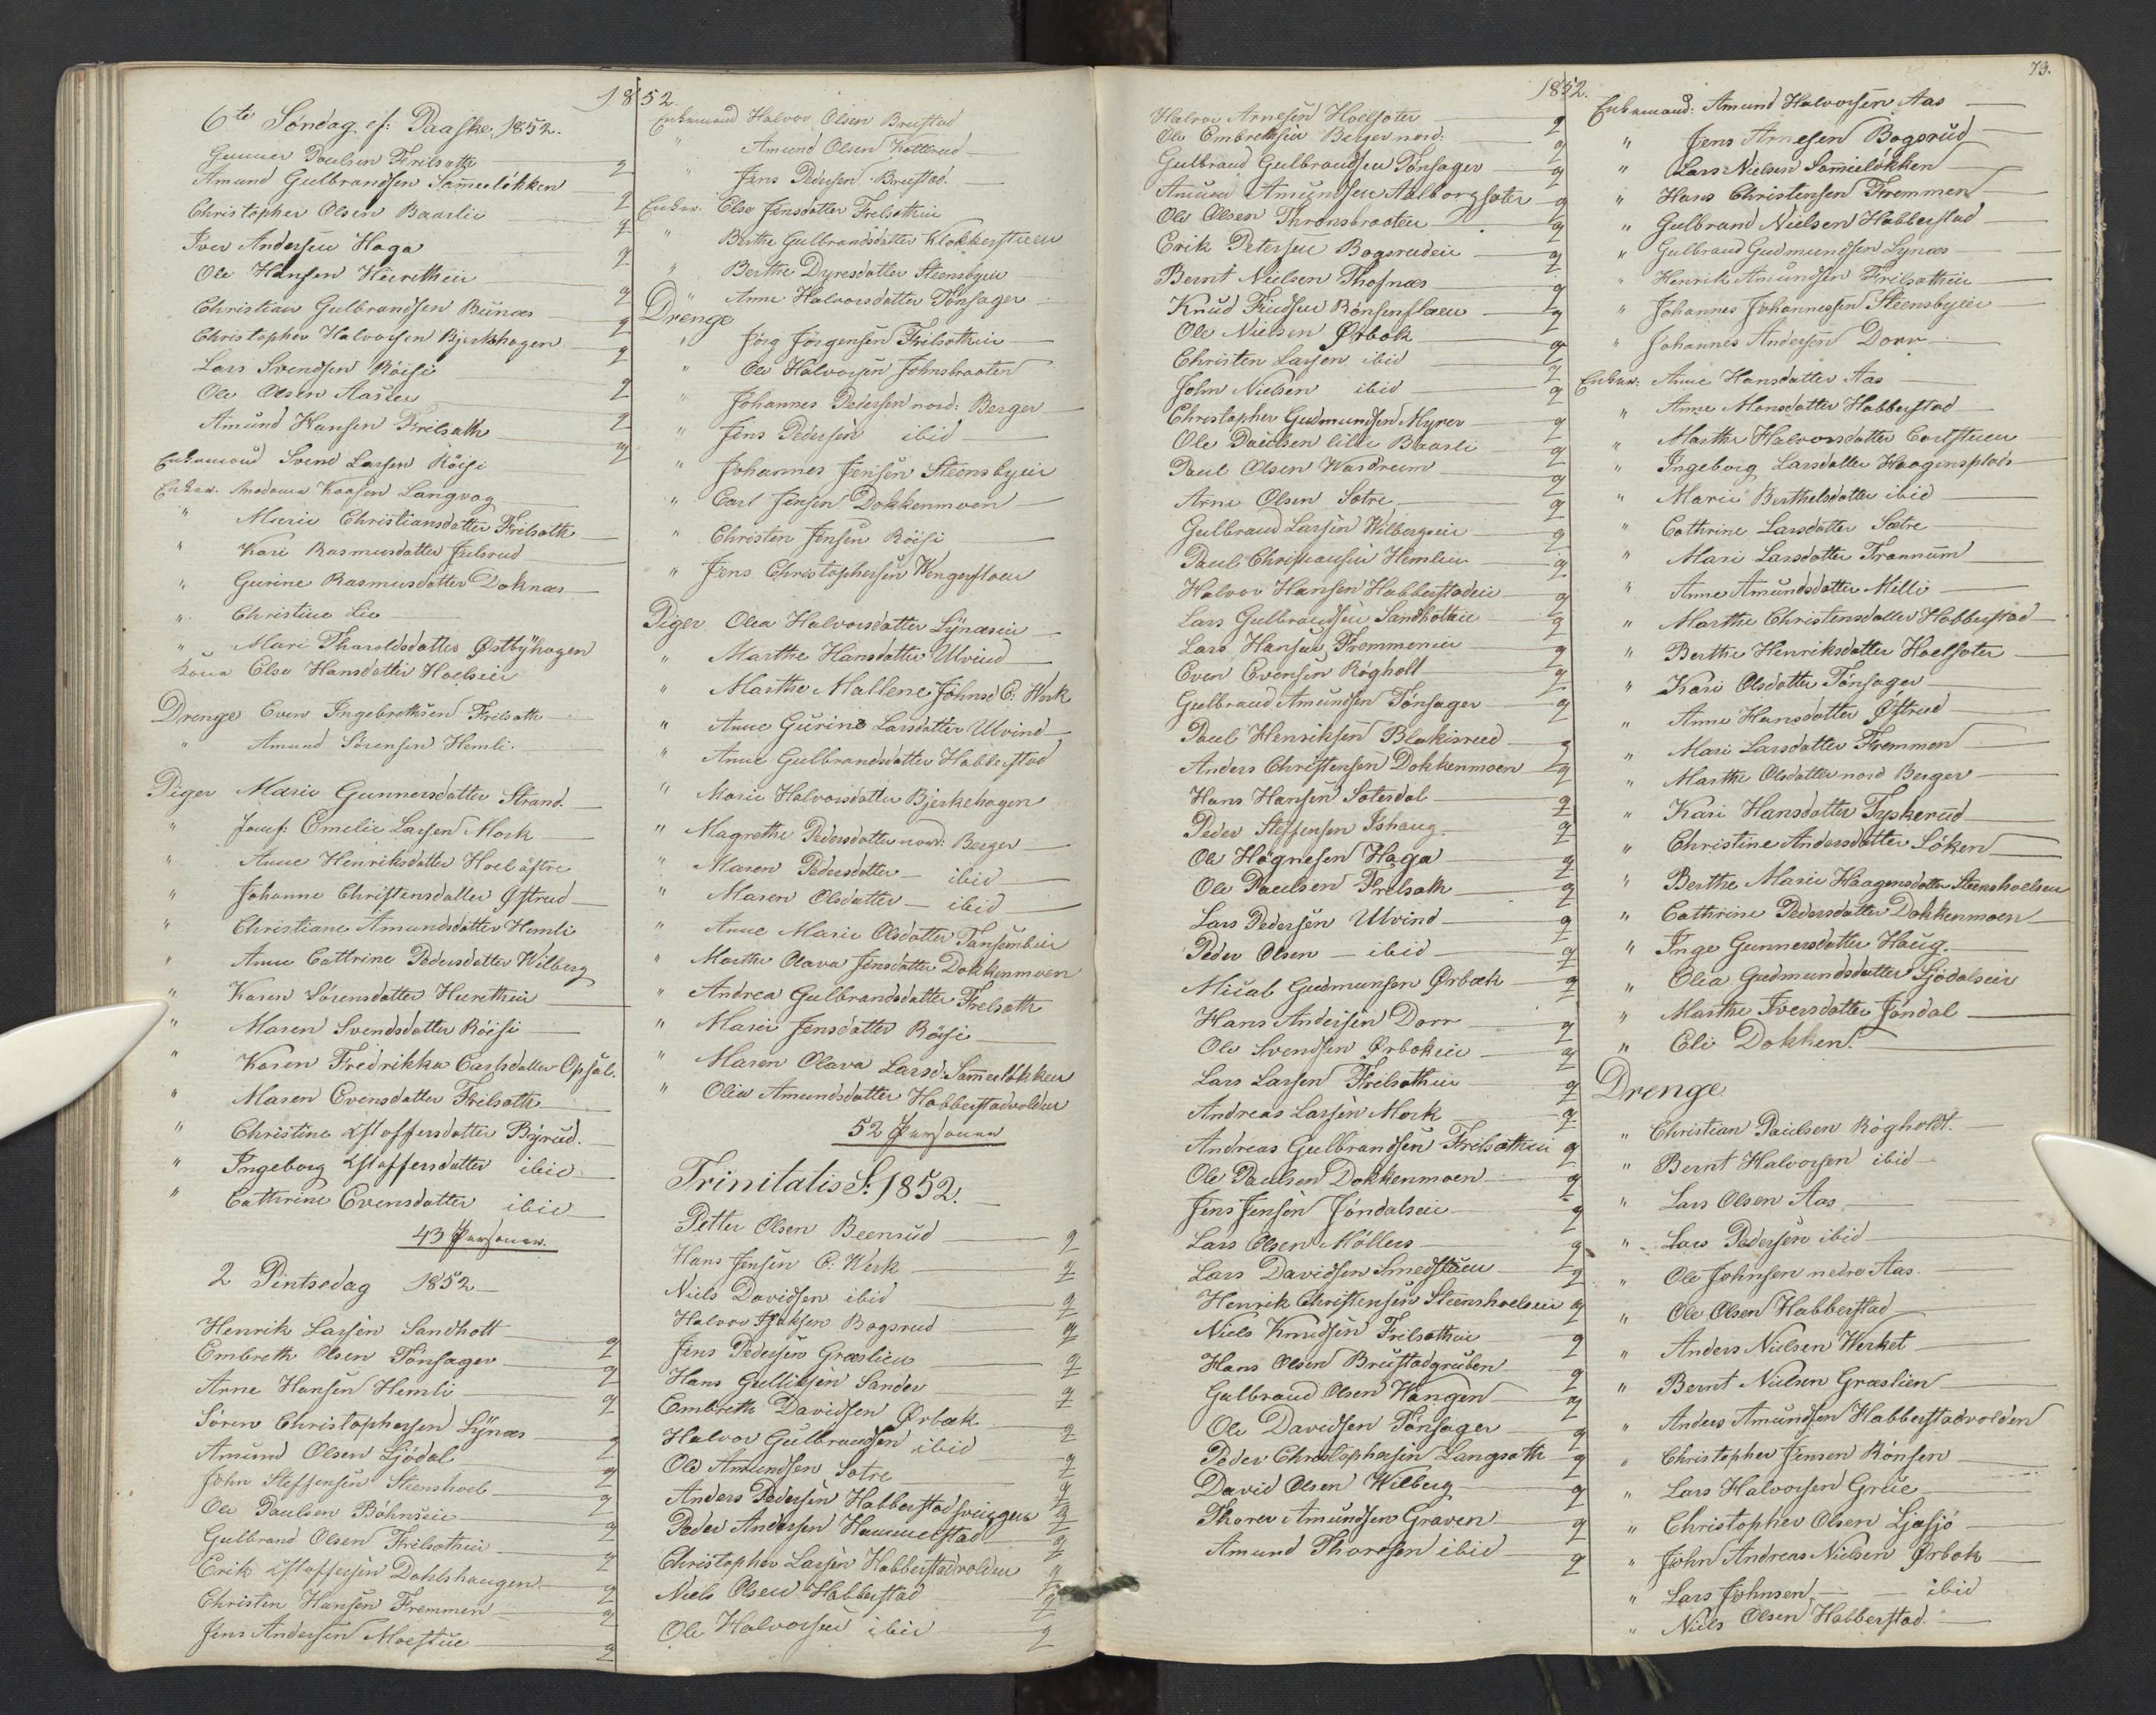 1852.
6te Søndag ef: Paaske 1852.
Gunner Poulsen Frilsath 2
Amund Gulbrandsen Sameløkken 2
Christopher Olsen Baarlie q
Iver Andersen Haga q
Ole Hansen Heieretheie q
Christian Gulbrandsen Bunæs q
Christopher Halvorsen Bjerkehagen q
Lars Svendsen Röise q
Ole Olsen Aasees q
Amund Hansen Frilsath q
Enkemand Svend Larsen Röise
Enkew. Madame Kaasen Langvag
" Marie Christiansdatter Frilsath
" Kari Rasmusdatter Julsrud
" Gurine Rasmusdatter Doknæs
" Christine Lie
" Mari Tharaldsdatter Østbÿhagen
Kona Else Hansdatter Hoelseie
Drenge Even Ingebrethsen Frilsath
" Amund Sørensen Hemli.
Piger Marie Gunnersdatter Strand.
" Jomf: Emelie Larsen Mork
" Anne Henriksdatter Hoel østre
" Johanne Christensdatter Østrud
" Christiane Amundsdatter Hemli
" Anne Cattrine Pedersdatter Wilberg
" Karen Sörensdatter Huretheie
" Maren Svendsdatter Röise
" Karen Fredrikka Carlsdatter Opsal.
" Maren Evensdatter Frilsath
" Christine Staffersdatter Bÿrud.
" Ingeborg Staffersdatter ibid
" Cathrine Evensdatter ibid
43 Personer.
2 Pintsedag 1852
Henrik Larsen Sandholt q
Embreth Olsen Tønsager q
Arne Hansen Hemli q
Sören Christophersen Lÿnæs q
Amund Olsen Ljödal q
John Steffensen Steenshoel q
Ole Paulsen Böhnseie q
Gulbrand Olsen Frilsatheie q
Erik Staffersen Dahlshaugen q
Christen Hansen Fremmen q
Jens Andersen Moestue q
Enkemand Halvor Olsen Brustad
" Amund Olsen Kotterud
" Jens Pedersen Brustad.
Enkew. Else Jensdatter Frelsatheie
" Berthe Gulbrandsdatter Klokkerstuen
" Berthe Dyresdatter Steensbyeie
" Anne Halvorsdatter Tönsager
Drenge
" Jørg Jörgensen Frilsatheie
" Ole Halvorsen Johnsbraaten
" Johannes Pedersen nord: Berger
" Jens Pedersen ibid
" Johannes Jensen Steensbyeie
" Carl Jensen Dokkenmoen
" Christen Jensen Röise
" Jens Christophersen Wengerfloen
Piger Olea Halvorsdatter Lÿnæseie
" Marthe Hansdatter Ulvind
" Marthe Mallene Johnsd E: Werk
" Anne Gurine Larsdatter Ulvind
" Anne Gulbrandsdatter Habberstad
" Marie Halvorsdatter Bjerkehagen
" Magrethe Pedersdatter nord: Berger
" Maren Pedersdatter ibid
" Maren Olsdatter ibid
" Anne Marie Olsdatter
" Marthe Olava Jensdatter Dokkenmoen
" Andrea Gulbrandsdatter Frelsath
" Marie Jensdatter Röise
" Maren Olava Larsd: Sameløkken
" Olea Amundsdatter Habberstadvolden
52 Personer
Trinitatis S: 1852.
Petter Olsen Beenrud q
Hans Jensen E. Werk q
Niels Davidsen ibid q
Halvor Isaksen Bogsrud q
Jens Pedersen Græslien q
Hans Gulliksen Sander q
Embreth Davidsen Ørbæk q
Halvor Gulbrandsen ibid q
Ole Amundsen Sætre q
Anders Pedersen Habberstadsvingen q
Peder Andersen Hammerstad q
Christopher Larsen Habberstadvolden q
Niels Olsen Habberstad q
Ole Halvorsen ibid q
1852.
73.
Halvor Arnesen Hoelsæter q
Ole Embrethsen Berger nord. q
Gulbrand Gulbrandsen Tönsager q
Amund Amundsen Aalborgsæter q
Ole Olsen Thronsbraaten q
Erik Petersen Bogsrudeie q
Bernt Nielsen Thosnæs q
Knud Knudsen Rönsenfloen q
Ole Nielsen Ørbæk q
Christen Larsen ibid q
John Nielsen ibid q
Christopher Gudmundsen Myrer q
Ole Paulsen lille Baarli q
Paul Olsen Wasdrum q
Arne Olsen Sætre q
Gulbrand Larsen Wilbergseie q
Paul Christiansen Hemlie q
Halvor Hansen Habberstadeie q
Lars Gulbrandsen Sandholteie q
Lars Hansen Fremmeneie q
Even Evensen Rögholt q
Gulbrand Amundsen Tönsager q
Paul Henriksen Blakisrud q
Anders Christensen Dokkenmoen q
Hans Hansen Sætersdal q
Peder Steffensen Ishaug q
Ole Høgnesen Haga q
Ole Paulsen Frilsath q
Lars Pedersen Ulvind q
Peder Olsen ibid q
Micael Gudmunsen Ørbæk q
Hans Andersen Dorr q
Ole Svendsen Ørbækeie q
Lars Larsen Frilsatheie q
Andreas Larsen Mork q
Andreas Gulbrandsen Frilsatheie q
Ole Paulsen Dokkenmoen q
Jens Jensen Jöndalseie q
Lars Olsen Möllers q
Lars Davidsen Smedstuen q
Henrik Christensen Steenshoelseie q
Niels Knudsen Frilsatheie q
Hans Olsen Brustadgruben q
Gulbrand Olsen Hangen q
Ole Davidsen Tønsager q
Peder Christophersen Langsæth q
David Olsen Wilberg q
Thorer Amundsen Graven q
Amund Thoresen ibid q
Enkemand: Amund Halvorsen Aas
" Jens Arnesen Bogsrud
" Lars Nielsen Sameløkken
" Hans Christensen Fremmen
" Gulbrand Nielsen Habberstad
" Gulbrand Gudmundsen Lynæs
" Henrik Amundsen Frilsatheie
" Johannes Johannessen Steensbyeie
" Johannes Andersen Dorr
Enkew: Anne Hansdatter Aas
" Anne Monsdatter Habberstad
" Marthe Halvorsdatter
" Ingeborg Larsdatter Haagensplads
" Marie Berthelsdatter ibid
" Cathrine Larsdatter Sætre
" Mari Larsdatter Trannum
" Anne Amundsdatter Milli
" Marthe Christensdatter Habberstad
" Berthe Henriksdatter Hoelsæter
" Kari Olsdatter Tönsager
" Anne Hansdatter Østrud
" Mari Larsdatter Fremmen
" Marthe Olsdatter nord Berger
" Kari Hansdatter Tyskerud
" Christine Andersdatter Löken
" Berthe Marie Haagensdatter Steenshoelseie
" Cathrine Pedersdatter Dokkenmoen
" Inge Gunnersdatter Haug.
" Olea Gudmundsdatter Ljödalseie
" Marthe Iversdatter Jöndal
" Eli Dokken.
Drenge
" Christian Paulsen Rögholdt.
" Bernt Halvorsen ibid
" Lars Olsen Aas
" Lars Pedersen ibid
" Ole Johnsen nedre Aas
" Ole Olsen Habberstad
" Anders Nielsen Werket
" Bernt Nielsen Græslien
" Anders Amundsen Habberstadvolden
" Christopher Jensen Rönsen
" Lars Halvorsen Grue
" Christopher Olsen Ljøsjö
" John Andreas Nielsen Ørbæk
" Lars Johnsen ibid
" Niels Olsen Habberstad.